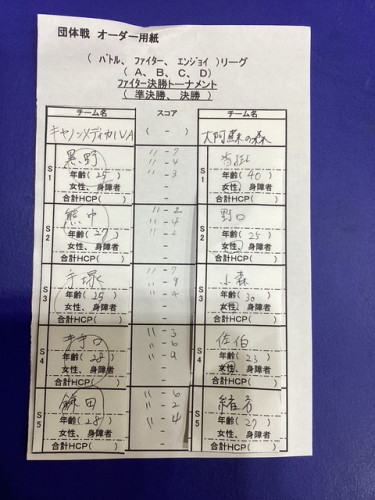 団体戦 オーダー用紙
( バトル、 ファイター、 エンジョイ )リーグ
( A、 B、 C、 D)
ファイター決勝トーナメント
( 準決勝、 決勝 )
チーム名 スコア チーム名
キヤノンメディカルVA ( - )
S1 黒野 11 - 7
11 - 4
年齢( 25 ) 11 - 3 S1 年齢( 40 )
女性、 身障者 - 女性、 身障者
合計HCP( ) - 合計HCP( )
S2 熊中 11 - 2 S2 野口
11 - 4
年齢( 27 ) 11 - 2 年齢( 25 )
女性、 身障者 - 女性、 身障者
合計HCP( ) - 合計HCP( )
S3 手塚 11 - 7 S3 小森
11 - 9
年齢( 25 ) 11 - 4 年齢( 30 )
女性、 身障者 - 女性、 身障者
合計HCP( ) - 合計HCP( )
S4 11 - 3 S4 佐伯
11 - 6
年齢( 28 ) 11 - 9 年齢( 23 )
女性、 身障者 - 女性、 身障者
合計HCP( ) - 合計HCP( )
S5 鎌田 11 - 6 S5 緒方
11 - 2
年齢( 28 ) 11 - 4 年齢( 27 )
女性、 身障者 - 女性、 身障者
合計HCP( ) - 合計HCP( )